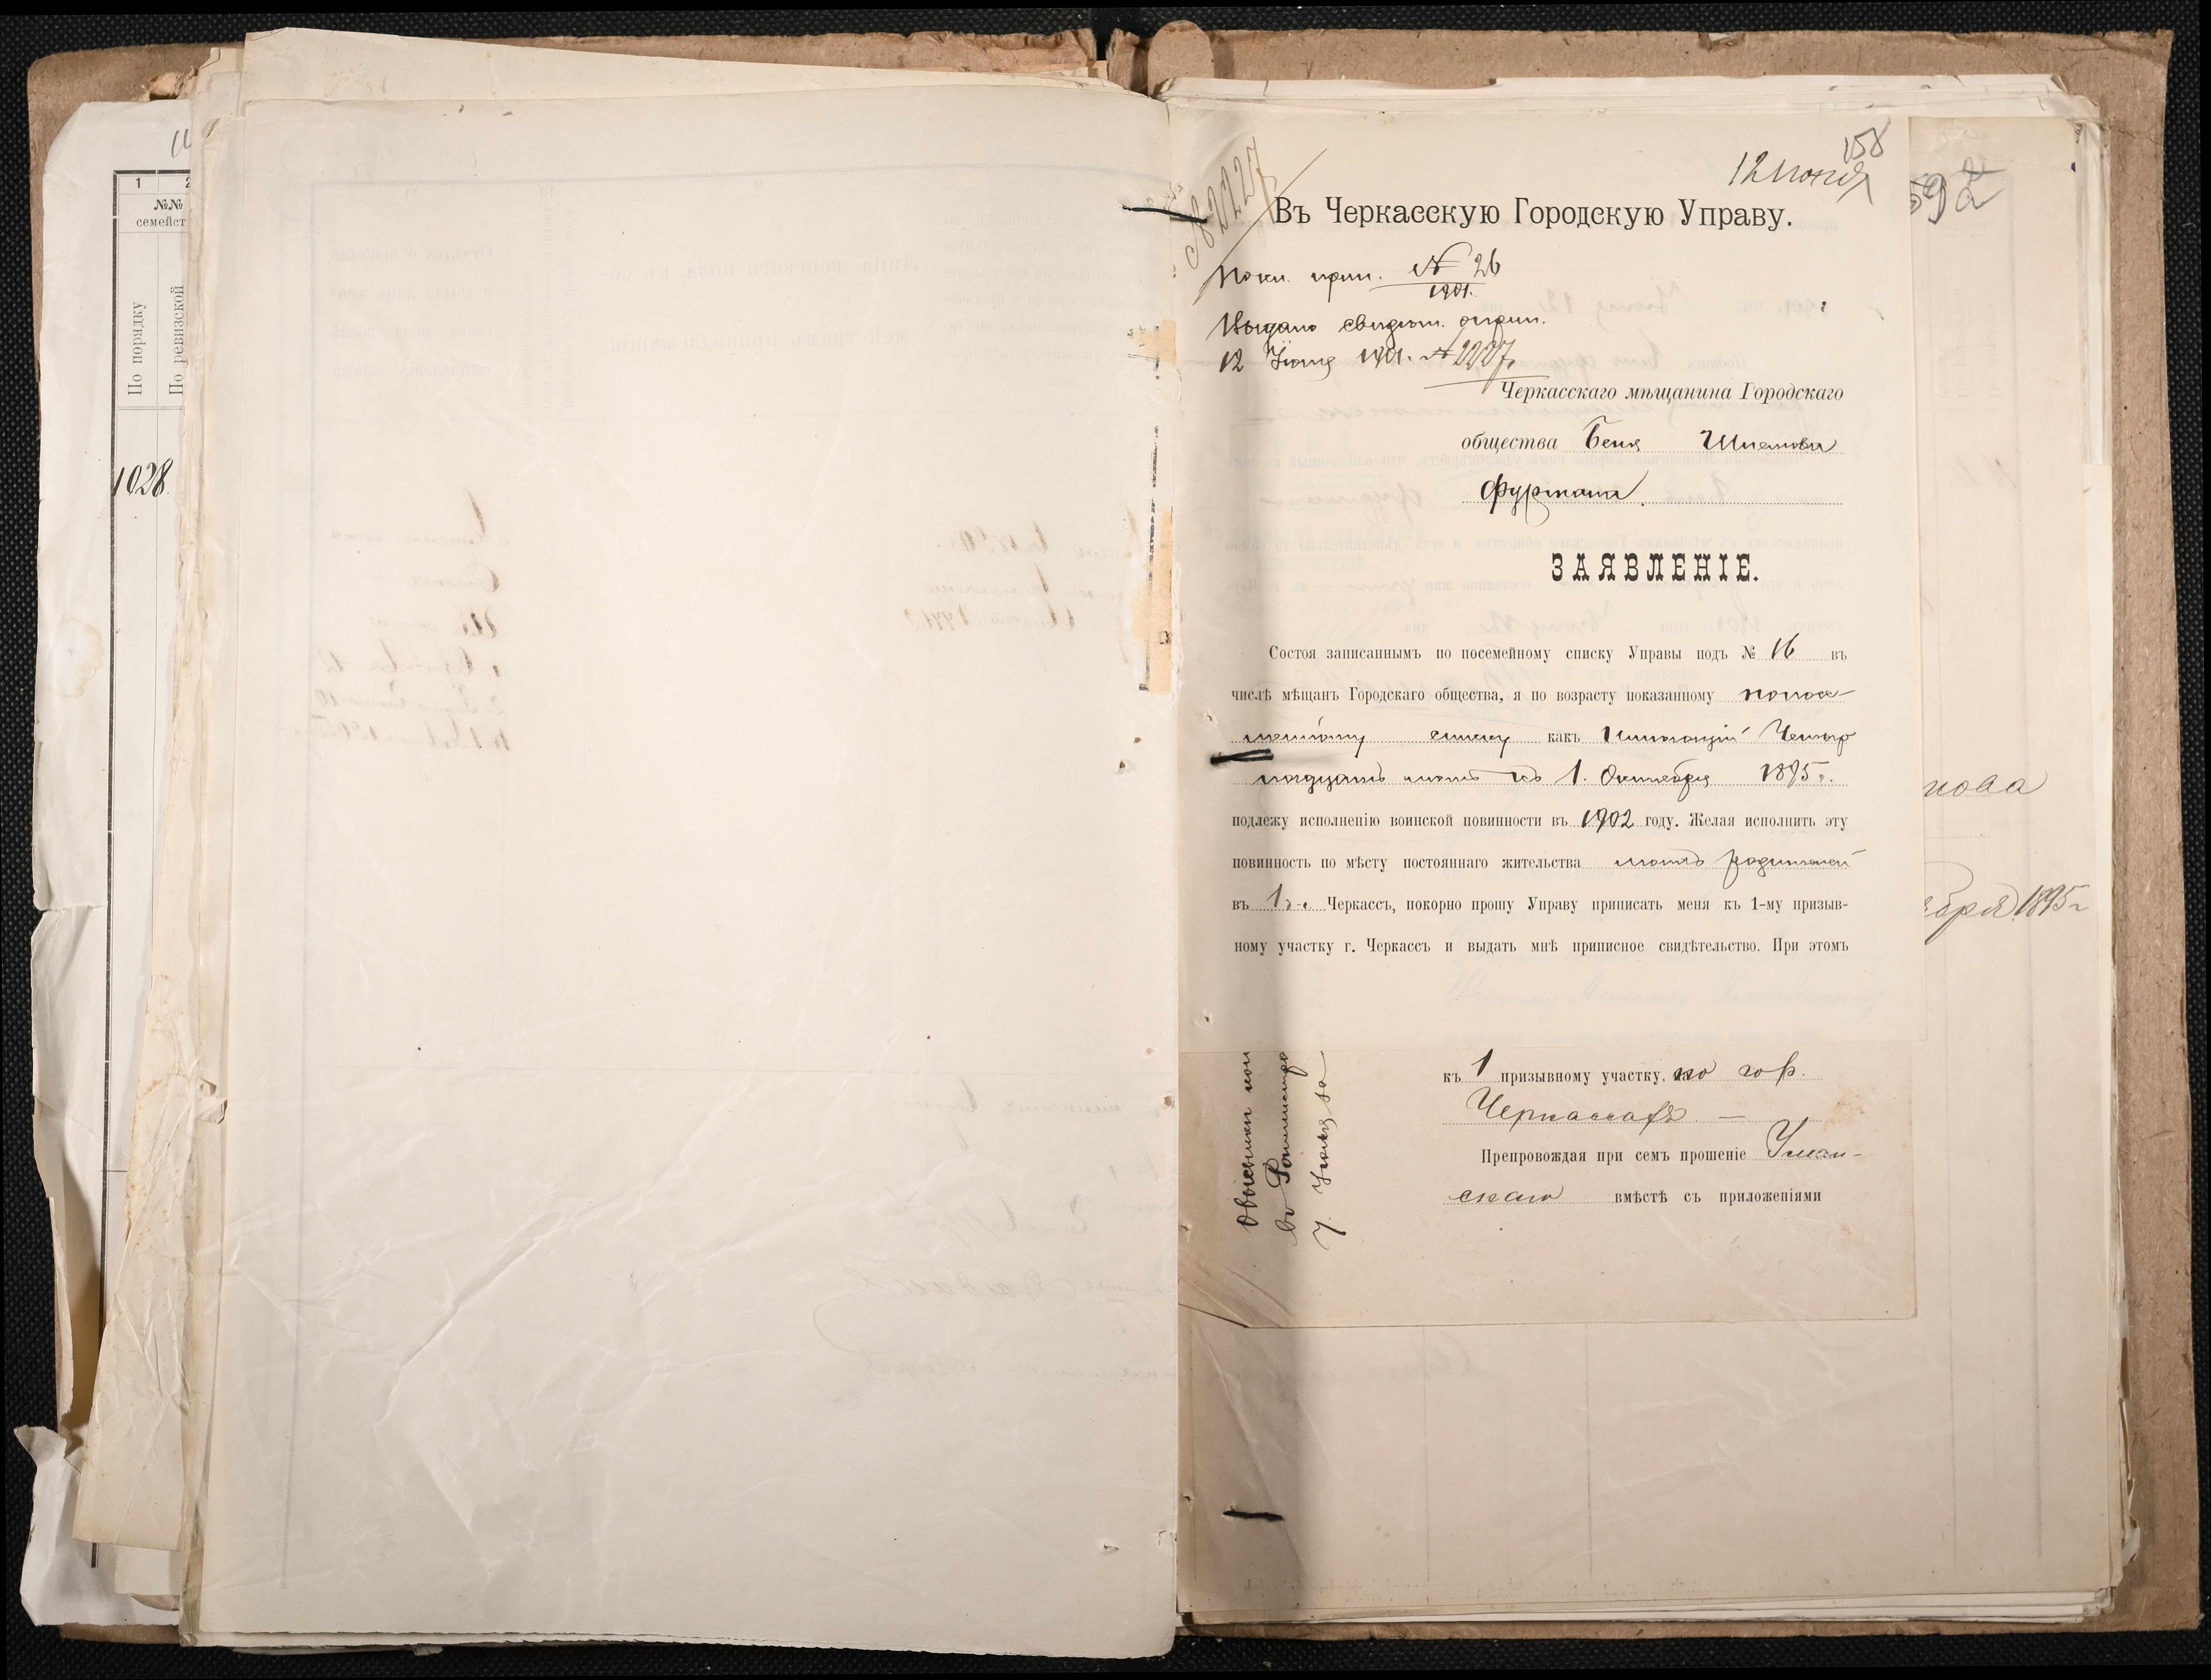 1 2
№№
семейст
По порядку
По ревизской
1028.
158
12 июня
№ 2227
Въ Черкасскую Городскую Управу.
№ 26
1901.
Выдано свидѣт. опред.
12 Іюня 1901. № 2227.
Черкасскаго мѣщанина Городскаго
общества Беня Шмелева
Фурмана.
ЗАЯВЛЕНІЕ.
Состоя записаннымъ по посемейному списку Управы подъ № 16 въ
числѣ мѣщанъ Городскаго общества, я по возрасту показанному посе-
мейному списку какъ имѣющій Четыр
надцать лѣтъ къ 1. Октября 1895 г.
подлежу исполненію воинской повинности въ 1902 году. Желая исполнить эту
повинность по мѣсту постояннаго жительства моихъ родителей
въ г. Черкассъ, покорно прошу Управу приписать меня къ 1-му призыв-
ному участку г. Черкассъ и выдать мнѣ приписное свидѣтельство. При этомъ
къ 1 призывному участку, по гор.
Черкассахъ. —
Препровождая при семъ прошеніе Уман-
скаго вмѣстѣ съ приложеніями
7. Іюля
нова
бря 1895 г